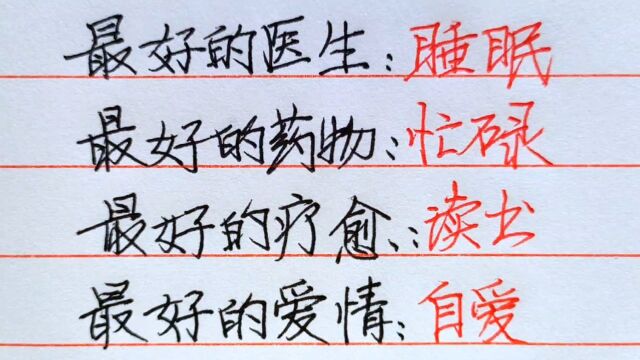 最好的医生:睡眠
最好的药物:忙碌
最好的疗愈:读书
最好的爱情:自爱